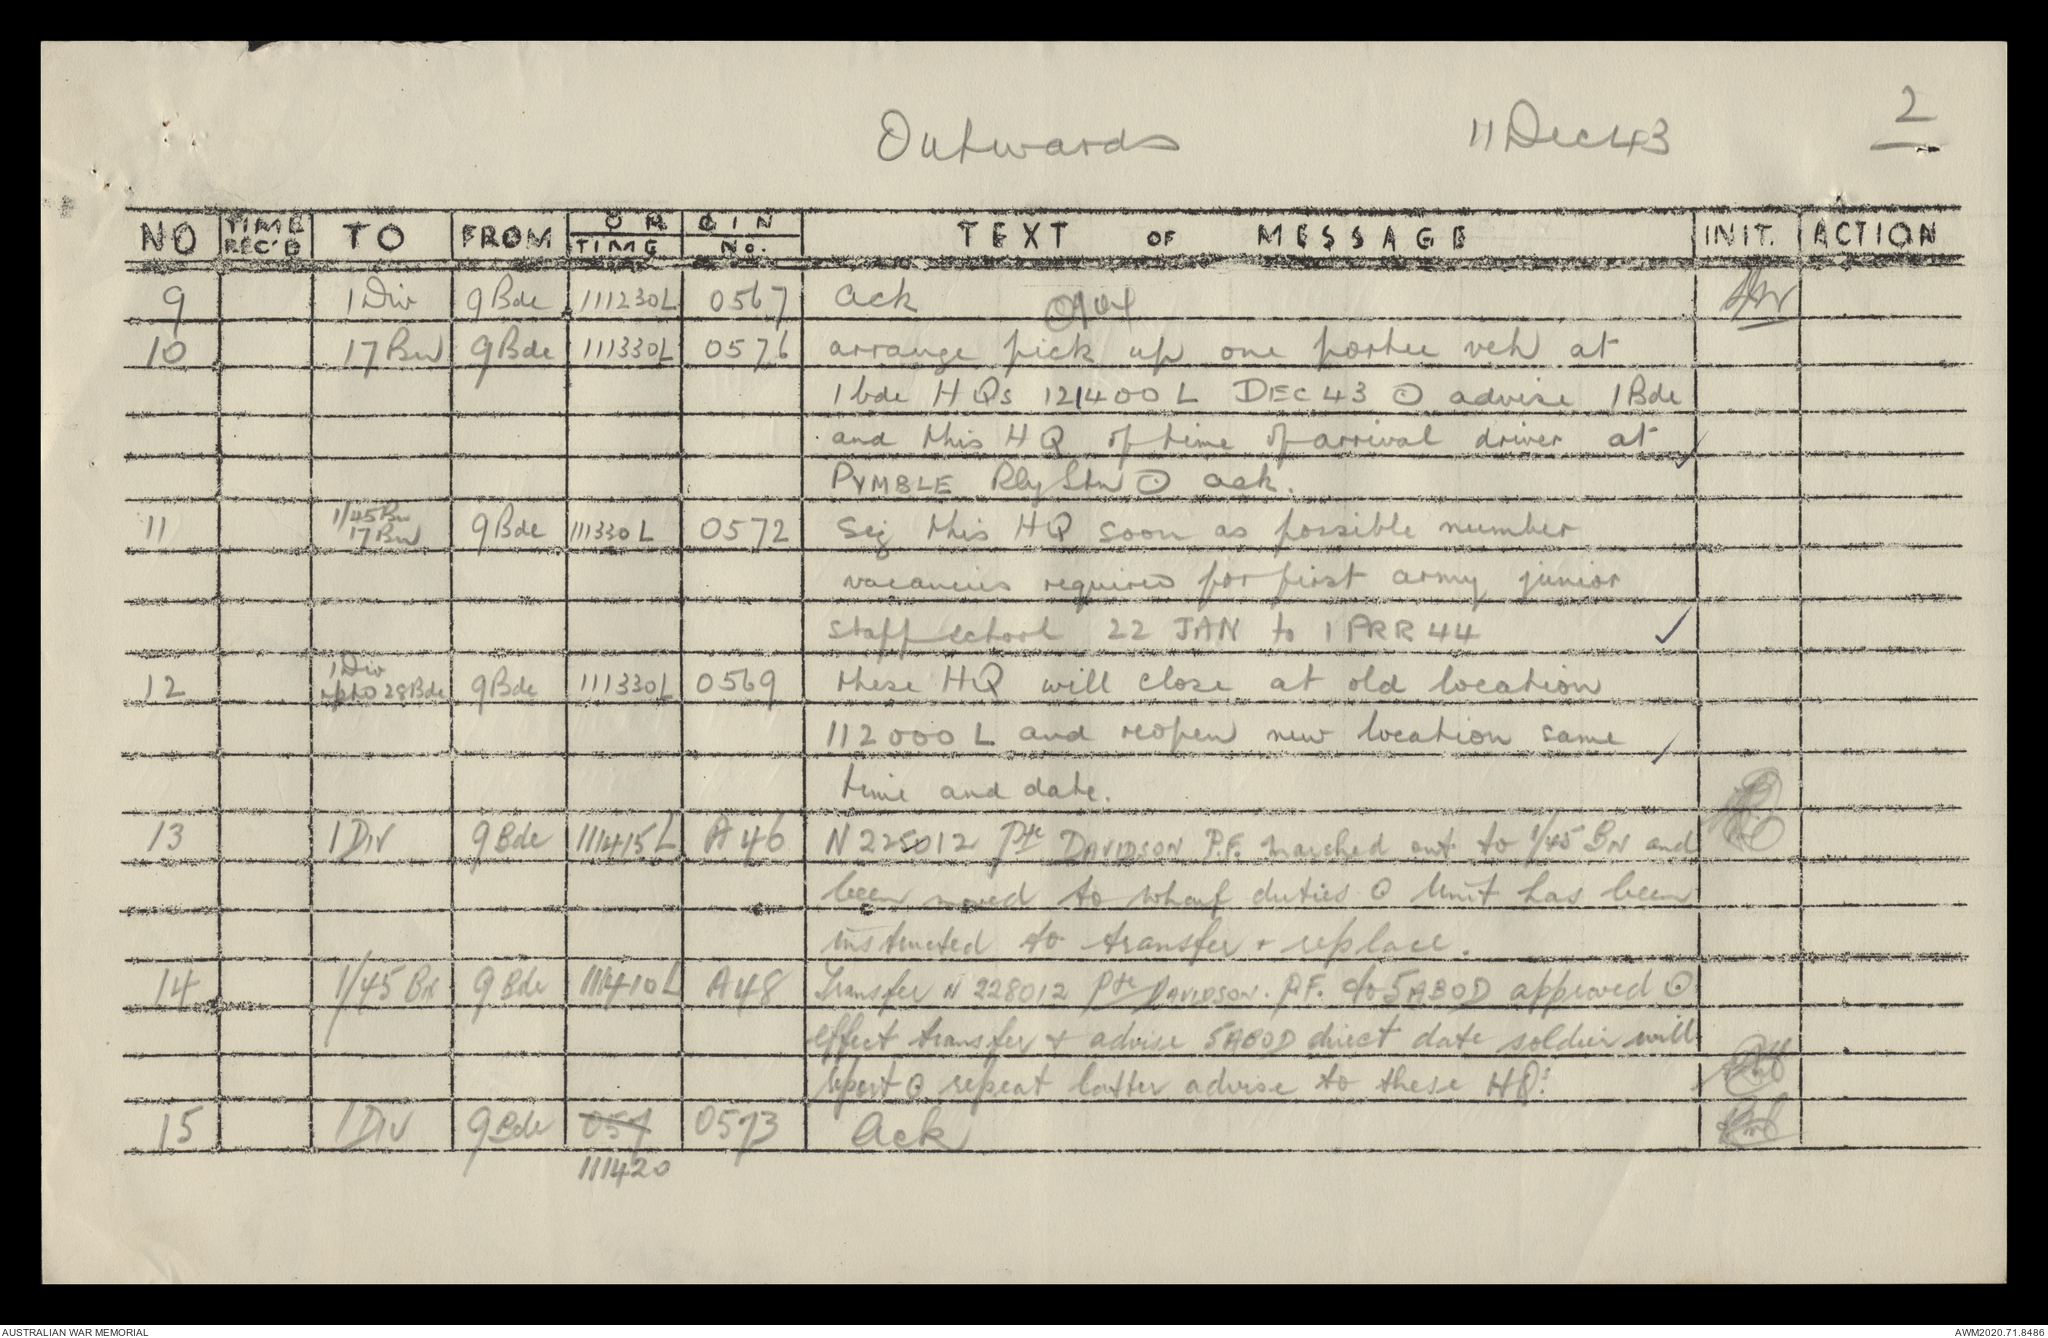 Outwards 11 Dec 43 2
NO TIME REC'D TO FROM ORIGIN TIME No. TEXT OF MESSAGE INIT. ACTION
9 1 Div 9 Bde 111230L 0567 ack
10 17 Bn 9 Bde 111330L 0576 arrange pick up one portee veh at
1 bde HQs 121400 L DEC 43 ⊙ advise 1 Bde
and this HQ of time of arrival driver at
PYMBLE Rly Stn ⊙ ack.
1/45 Bn
11 17 Bn 9 Bde 111330L 0572 Sig this HQ soon as possible number
vacancies required for first army junior
staff school 22 JAN to 1 44
1 Div
12 rptd 28 Bde 9 Bde 111330L 0569 these HQ will close at old location
112000 L and reopen new location same
time and date.
13 1 DIV 9 Bde 111415L A46 N 225012 Pte DAVIDSON P.F. marched out to 1/45 BN and
been moved to wharf duties ⊙ Unit has been
instructed to transfer + replace.
14 1/45 BN 9 Bde 111410L A48 Transfer N 228012 Pte DAVIDSON. P.F. to 5 ABOD approved ⊙
effect transfer + advise 5 ABOD direct date soldier will
report ⊙ repeat latter advise to these HQs.
15 1 DIV 9 Bde 057 0573 Ack
111420
AUSTRALIAN WAR MEMORIAL AWM2020.71.8486